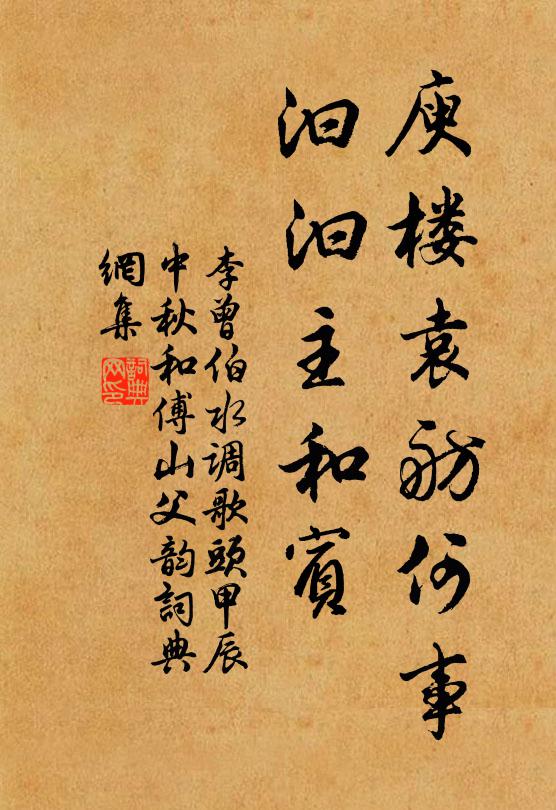 庾楼袁舫何事
汩汩主和賓
李曾伯水调歌頭甲辰
中秋和傅山父韵詞典
網集
詞典
网印